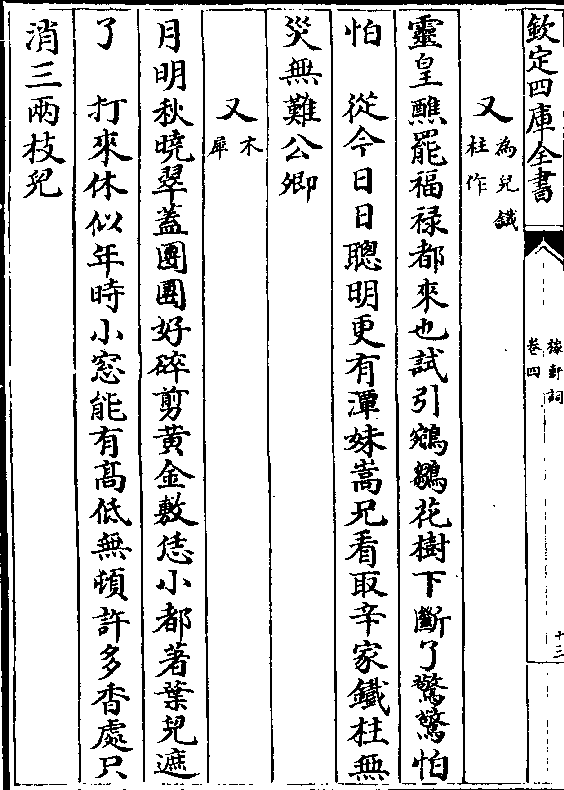 欽定四庫全書
稼軒詞
卷四
十三
又為兒鐵柱作
靈皇醮罷福祿都來也試引鵷鶵花樹下斷了驚驚怕
怕　從今日日聰明更有潭妹嵩兄看取辛家鐵柱無
災無難公卿
又木犀
月明秋曉翠蓋團團好碎剪黃金敷恁小都著葉兒遮
了　打來休似年時小窓能有髙低無頓許多香處只
消三兩枝兒